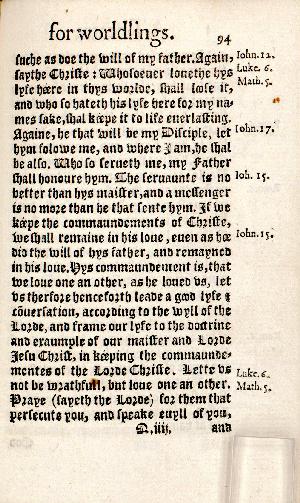 for worldlings. 94
suche as doe the will of my father. Again, Iohn.12.
saythe Christe: Whosoeuer louethe hys Luke. 6.
lyfe héere in thys worlde, shall lose it, Math. 5.
and who so hateth his lyfe here for my na-
mes sake, shal kéepe it to life euerlasting.
Againe, he that will be my Disciple, let Iohn.17.
hym folowe me, and where I am, he shal
be also. Who so serueth me, my Father
shall honoure hym. The seruaunte is no Ioh. 15.
better than hys maister, and a messenger
is no more than he that sente hym. If we
kéepe the commaundements of Christe,
we shall remaine in his loue, euen as hée Iohn.15.
did the will of hys father, and remayned
in his loue. Hys commaundement is, that
we loue one an other, as he loued vs, let
vs therfore henceforth leade a good lyfe &
cōuersation, according to the wyll of the
Lorde, and frame our lyfe to the doctrine
and example of our maister and Lorde
Jesu Christ, in kéeping the commaunde-
mentes of the Lorde Christe. Lette vs Luke. 6.
not be wrathfull, but loue one an other. Math. 5.
Praye (sayeth the Lorde) for them that
persecute you, and speake euyll of you,
Q.iiij. and